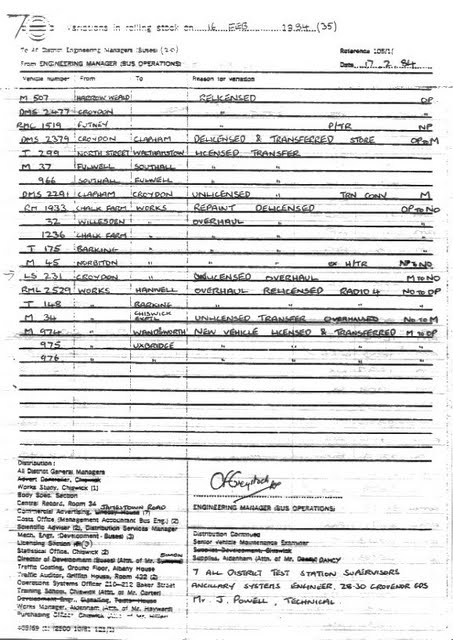 Variations in rolling stock on 16 FEB 1984 (35)
To All District Engineering Managers (Buses) (20)
Reference 105/1(
From ENGINEERING MANAGER (BUS OPERATIONS)
Date 17.2.84
Vehicle number From To Reason for variation
M 507 HARROW WEALD RELICENSED OP
DMS 2477 CROYDON " "
RML 1519 PUTNEY " P/TR NP
DMS 2379 CROYDON CLAPHAM DELICENSED & TRANSFERRED STORE OP to M
T 299 NORTH STREET WALTHAMSTOW LICENSED TRANSFER
M 37 FULWELL SOUTHALL " "
966 SOUTHALL FULWELL " "
DMS 2291 CLAPHAM CROYDON UNLICENSED " TRN CONV M
RM 1933 CHALK FARM WORKS REPAINT DELICENSED OP to NO
32 WILLESDEN " OVERHAUL " "
1236 CHALK FARM " " " "
T 175 BARKING " " " "
M 45 NORBITON " " " ex H/TR NP to NO
LS 231 CROYDON " DELICENSED OVERHAUL M to NO
RML 2529 WORKS HANWELL OVERHAUL RELICENSED RADIO 4 NO to OP
T 148 " BARKING " " "
M 34 " CHISWICK EXPTL UNLICENSED TRANSFER OVERHAULED NO to M
M 974 " WANDSWORTH NEW VEHICLE LICENSED & TRANSFERRED M to OP
975 " UXBRIDGE " " " "
976 " " " " " "
Distribution:
All District General Managers
Advert Controller, Chiswick
Works Study, Chiswick (1)
Body Spec. Section
Central Record, Room 34 JAMESTOWN ROAD
Commercial Advertising, (7)
Costs Office (Management Accountant Bus Eng.) (2)
Scientific Adviser (2), Distribution Services Manager
Mech. Engr. (Development - Buses) (3)
Licensing Section
Statistical Office, Chiswick (2)
Director of Development (Buses) (Attn. of Mr.
Traffic Costing, Ground Floor, Albany House
Traffic Auditor, Griffith House, Room 422 (2)
Operations Systems Officer 210-212 Baker Street
Training School, Chiswick (Attn. of Mr. Carter)
Works Manager, Aldenham (Attn. of Mr. Hayward)
Purchasing Officer (Attn. of Mr. Hiller)
ENGINEERING MANAGER (BUS OPERATIONS)
Distribution Continued
Senior Vehicle Maintenance Examiner
Supplies, Aldenham (Attn. of Mr. DANCY)
7 ALL DISTRICT TEST STATION SUPERVISORS
ANCILLARY SYSTEMS ENGINEER, 28-30 GROVENOR GDS
Mr. J. POWELL, TECHNICAL